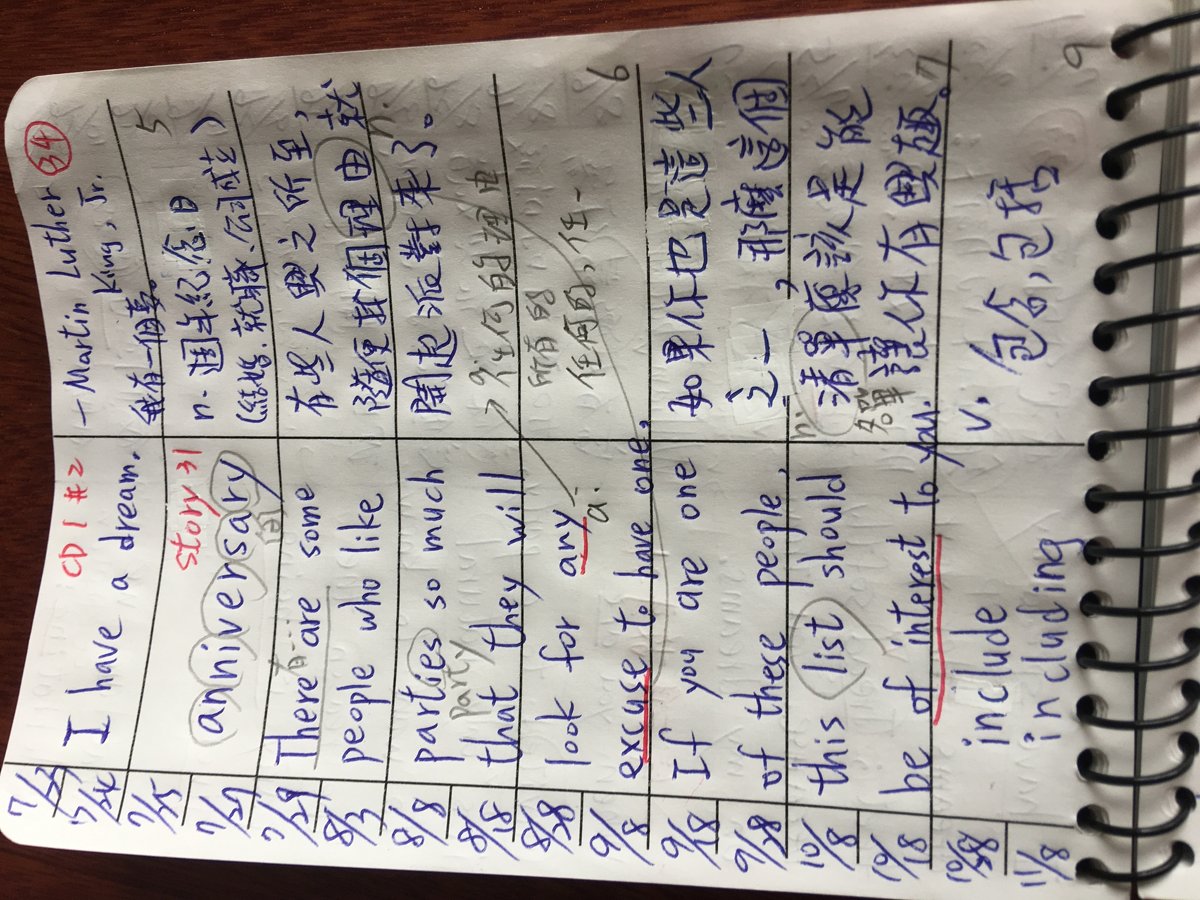 7/23
I have a dream.
CD 1 #2
— Martin Luther
King, Jr.
34
我有一個夢。
7/24
7/25
story 31
5
7/27
anniversary
n. 週年紀念日
(結婚、就職、公司成立)
7/29
There are some
有些人興之所至，
8/3
people who like
隨便找個理由就
n.
8/8
parties so much
party
開起派對來了。
8/18
that they will
任何的理由
8/28
look for any
a.
所有的
任何的，任一
9/8
excuse to have one,
6
9/18
If you are one
如果你也是這些人
9/28
of these people,
之一，那麼這個
10/8
this list should
n.
清單應該是能
名單
10/18
be of interest to you.
讓你有興趣。
7
10/28
include
v. 包含，包括
11/8
including
9